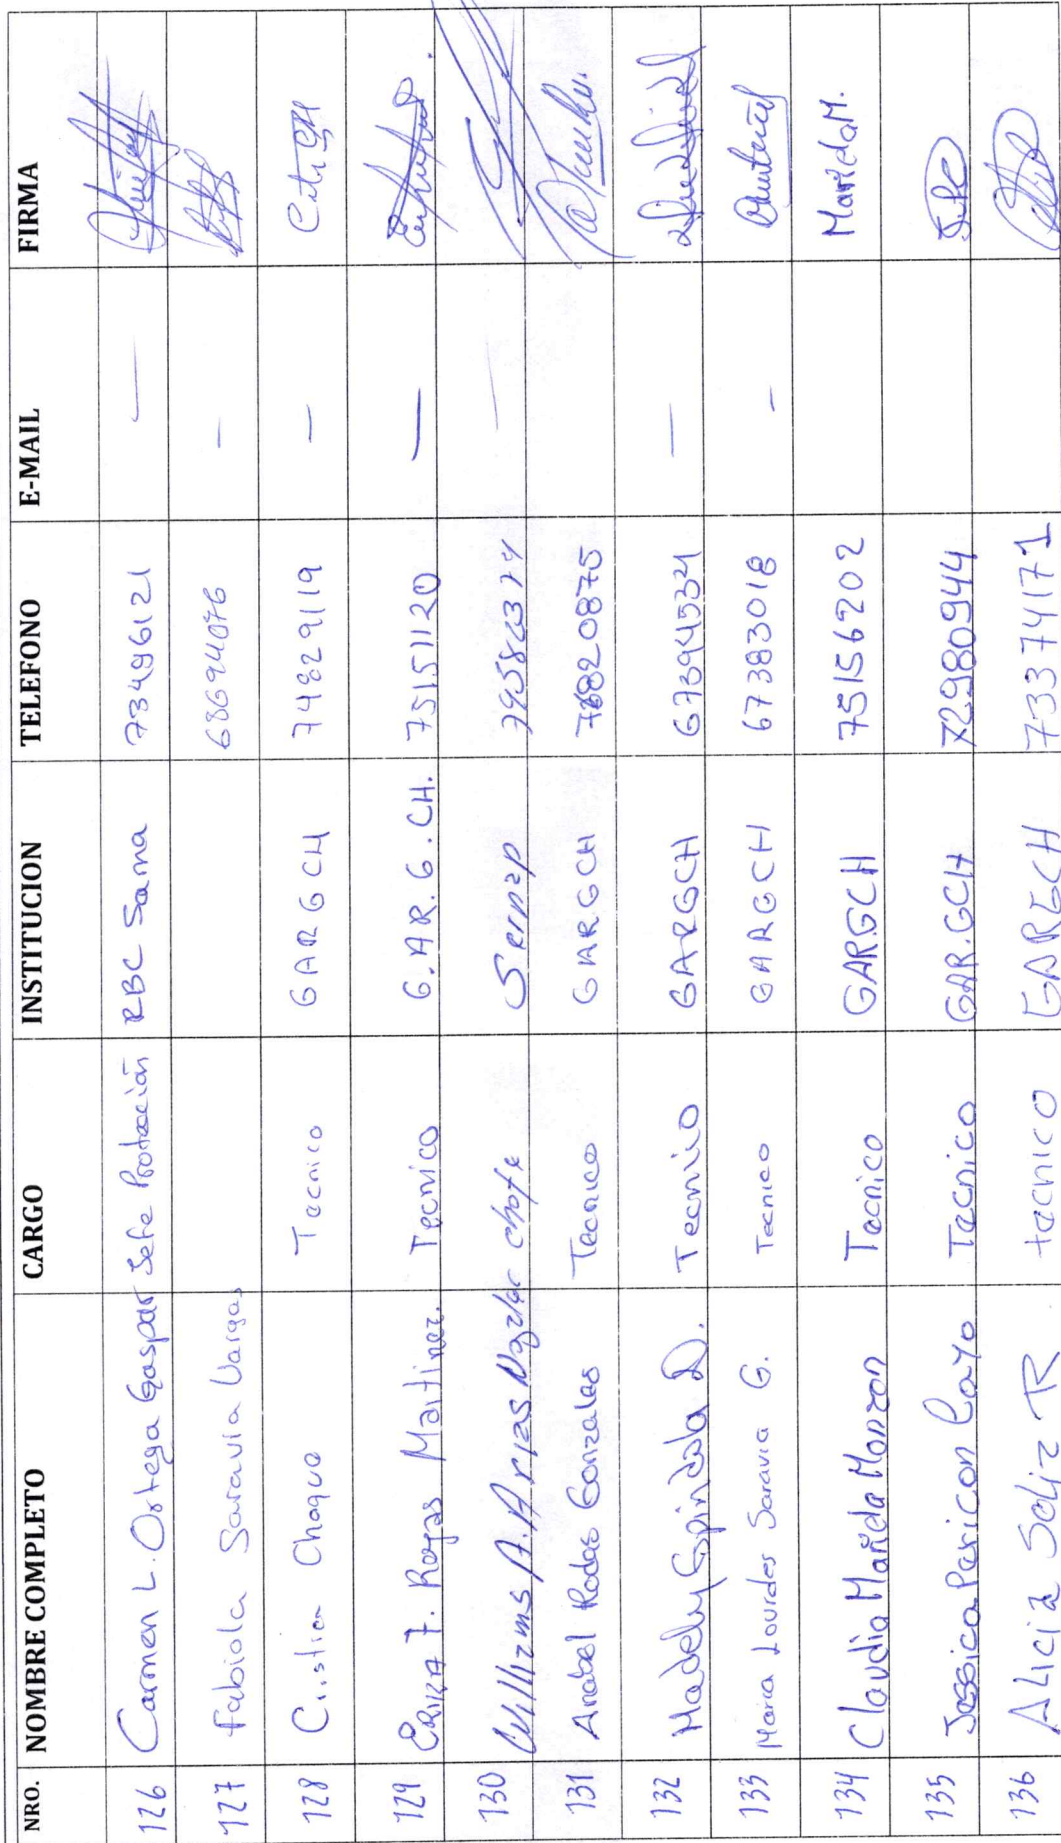 NRO. NOMBRE COMPLETO CARGO INSTITUCION TELEFONO E-MAIL FIRMA
126 Carmen L. Ortega Gaspar Jefe Protección RBC Sama 73496121 —
127 Fabiola Saravia Vargas 68694076 -
128 Cristian Choque Tecnico GARGCH 74829119 -
129 Rojas Martinez. Tecnico G.A.R.G.CH. 75151120 —
130 Williams A. Arias Chofe Sernap —
131 Anabel Rodas Gonzales Tecnico GARGCH 76820875
132 Madely Espindola D. Tecnico GARGCH 67394534 —
133 Maria Lourdes Saravia G. Tecnico GARGCH 67383018 -
134 Claudia Mariela Monzon Tecnico GARGCH 75156202 MarielaM.
135 Jessica Paricon Cayo Tecnico GAR.GCH 72980944
136 Alicia Soliz R tecnico GARGCH 73374171